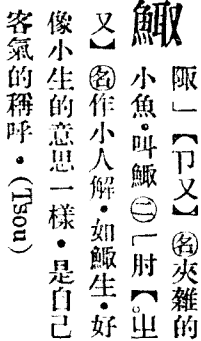 鯫
陬」【ㄗㄡ】㊔夾雜的
小魚•叫鯫㊁「肘【。ㄓ
ㄡ】㊔作小人解•如鯫生•好
像小生的意思一樣•是自己
客氣的稱呼•(Tsou)